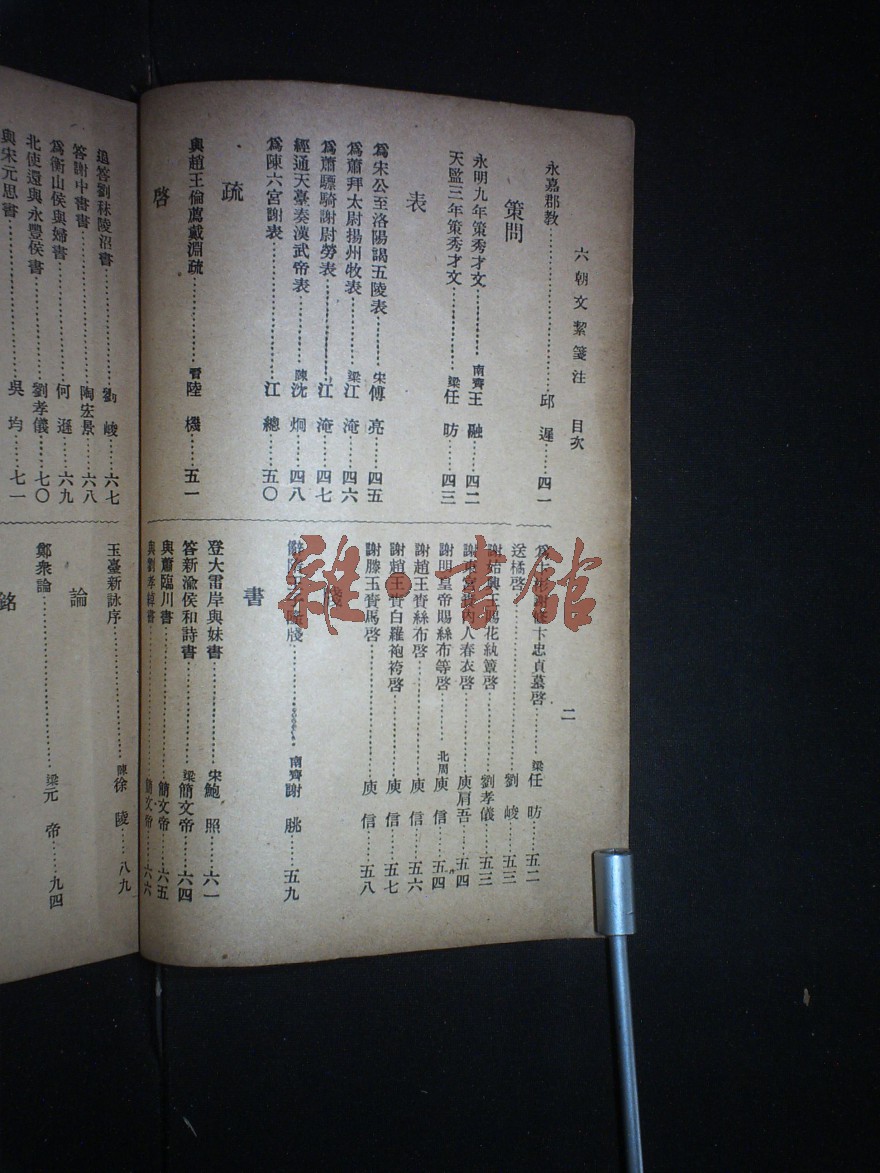 六朝文絜箋注　目次
二
永嘉郡教……邱遲……四一
策問
永明九年策秀才文……南齊王融……四二
天監三年策秀才文……梁任昉……四三
表
爲宋公至洛陽謁五陵表……宋傅亮……四五
爲蕭拜太尉揚州牧表……梁江淹……四六
爲蕭驃騎謝尉勞表……江淹……四七
經通天臺奏漢武帝表……陳沈炯……四八
爲陳六宮謝表……江總……五〇
疏
與趙王倫薦戴淵疏……晉陸機……五一
啓
卞忠貞墓啓……梁任昉……五二
送橘啓……劉峻……五三
謝始興王賜花紈簟啓……劉孝儀……五三
内人春衣啓……庾肩吾……五四
謝明皇帝賜絲布等啓……北周庾信……五四
謝趙王賚絲布啓……庾信……五六
謝趙王賚白羅袍袴啓……庾信……五七
謝滕王賚馬啓……庾信……五八
牋
牋……南齊謝朓……五九
書
登大雷岸與妹書……宋鮑照……六一
答新渝侯和詩書……梁簡文帝……六四
與蕭臨川書……簡文帝……六五
與劉孝綽書……簡文帝……六六
追答劉秣陵沼書……劉峻……六七
答謝中書書……陶宏景……六八
爲衡山侯與婦書……何遜……六九
北使還與永豐侯書……劉孝儀……七〇
與宋元思書……吳均……七一
玉臺新詠序……陳徐陵……八九
論
鄭衆論……梁元帝……九四
銘
雜·書館